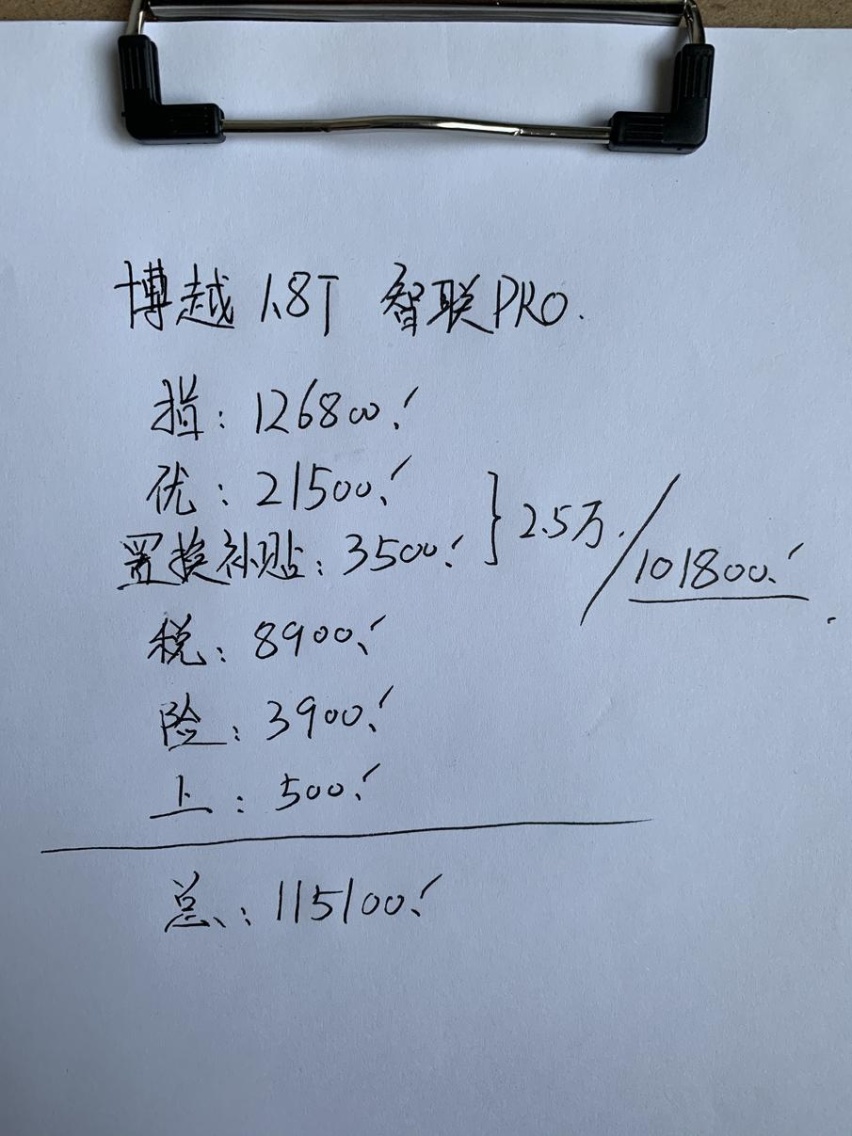 博越 1.8T 智联PRO.
指: 126800.
优: 21500.
置换补贴: 3500. } 2.5万. / 101800.
税: 8900.
险: 3900.
上: 500.
总: 115100.